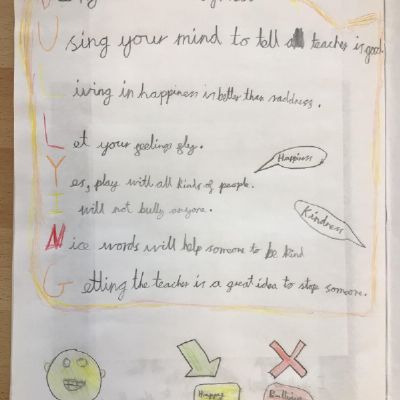 Using your mind to tell a teacher is good.
Living in happiness is better than saddness.
Let your feelings fly.
Happiness
Yes, play with all kinds of people.
I will not bully anyone.
Kindness
Nice words will help someone to be kind
Getting the teacher is a great idea to stop someone.
Happy